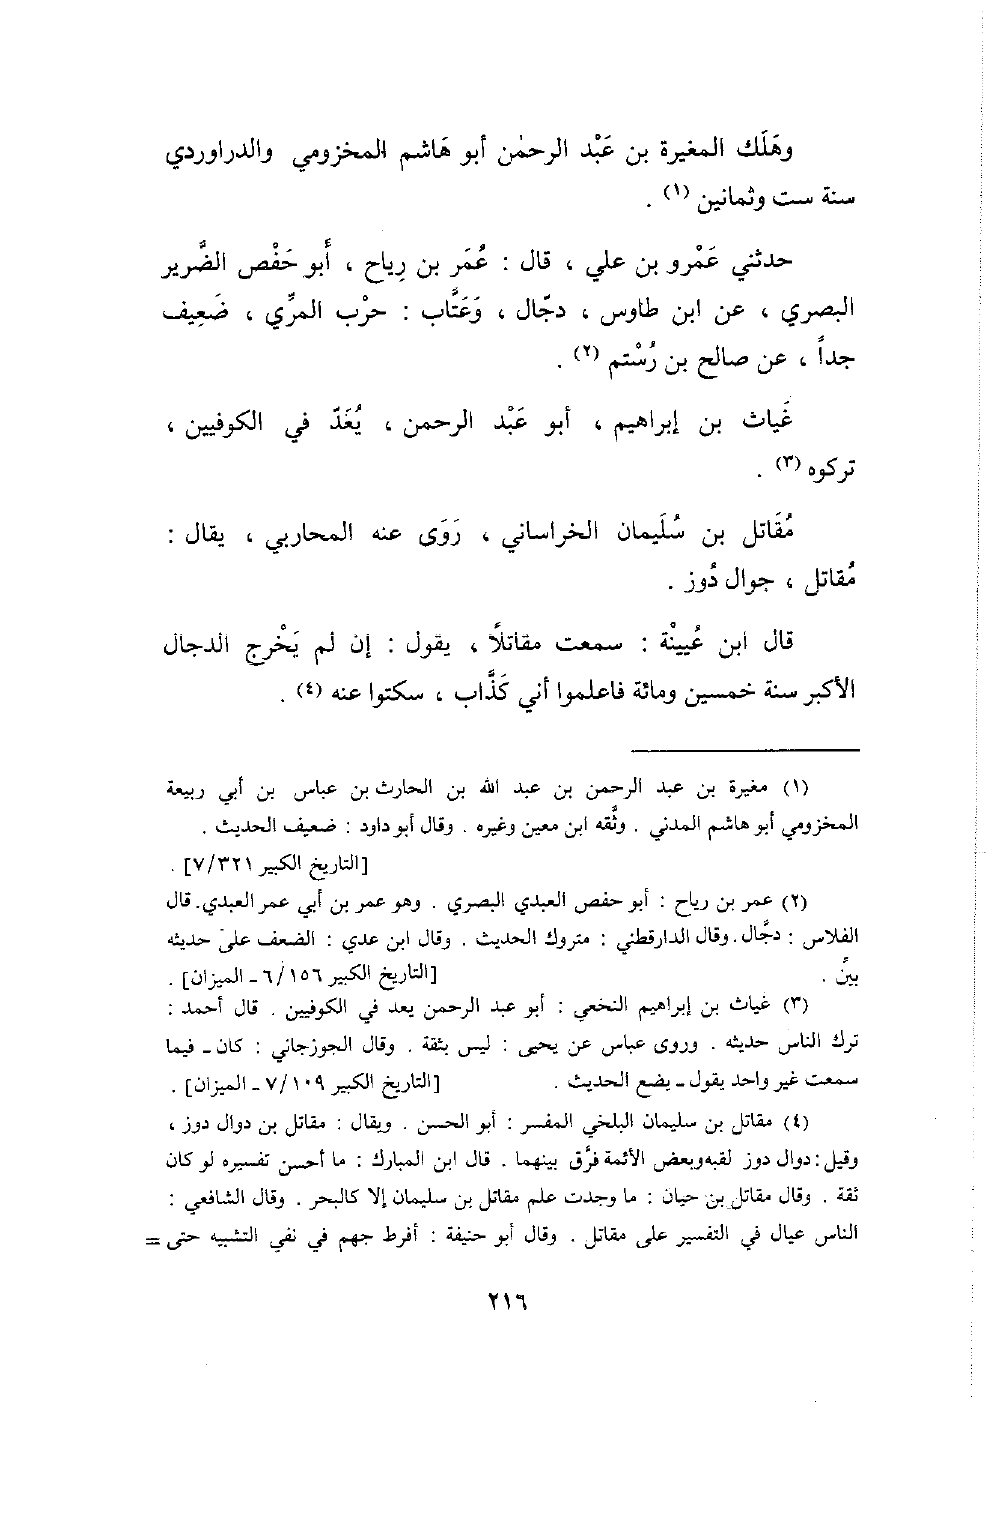 وهَلَك المغيرة بن عَبْد الرحمٰن أبو هَاشم المخزومي والدراوردي
سنة ست وثمانين (١) .
حدثني عَمْرو بن علي ، قال : عُمَر بن رِياح ، أَبو حَفْص الضَّرير
البصري ، عن ابن طاوس ، دجّال ، وَعَتَّاب : حرْب المرِّي ، ضَعِيف
جداً ، عن صالح بن رُسْتم (٢) .
غَياث بن إبراهيم ، أبو عَبْد الرحمن ، يُعَدّ في الكوفيين ،
تركوه (٣) .
مُقَاتل بن سُلَيمان الخراساني ، رَوَى عنه المحاربي ، يقال :
مُقاتل ، جوال دُوز .
قال ابن عُيينْة : سمعت مقاتلاً ، يقول : إن لم يَخْرج الدجال
الأكبر سنة خمسين ومائة فاعلموا أني كَذَّاب ، سكتوا عنه (٤) .
(١) مغيرة بن عبد الرحمن بن عبد الله بن الحارث بن عباس بن أبي ربيعة
المخزومي أبو هاشم المدني . وثَّقه ابن معين وغيره . وقال أبو داود : ضعيف الحديث .
[التاريخ الكبير ٧/٣٢١] .
(٢) عمر بن رياح : أبو حفص العبدي البصري . وهو عمر بن أبي عمر العبدي. قال
الفلاس : دجَّال. وقال الدارقطني : متروك الحديث . وقال ابن عدي : الضعف على حديثه
بينّ . [التاريخ الكبير ٦/١٥٦ ـ الميزان] .
(٣) غياث بن إبراهيم النخعي : أبو عبد الرحمن يعد في الكوفيين . قال أحمد :
ترك الناس حديثه . وروى عباس عن يحيى : ليس بثقة . وقال الجوزجاني : كان ـ فيما
سمعت غير واحد يقول ـ يضع الحديث . [التاريخ الكبير ٧/١٠٩ ـ الميزان] .
(٤) مقاتل بن سليمان البلخي المفسر : أبو الحسن . ويقال : مقاتل بن دوال دوز ،
وقيل : دوال دوز لقبه وبعض الأئمة فرَّق بينهما . قال ابن المبارك : ما أحسن تفسيره لو كان
ثقة . وقال مقاتل بن حيان : ما وجدت علم مقاتل بن سليمان إلا كالبحر . وقال الشافعي :
الناس عيال في التفسير على مقاتل . وقال أبو حنيفة : أفرط جهم في نفي التشبيه حتى =
٢١٦